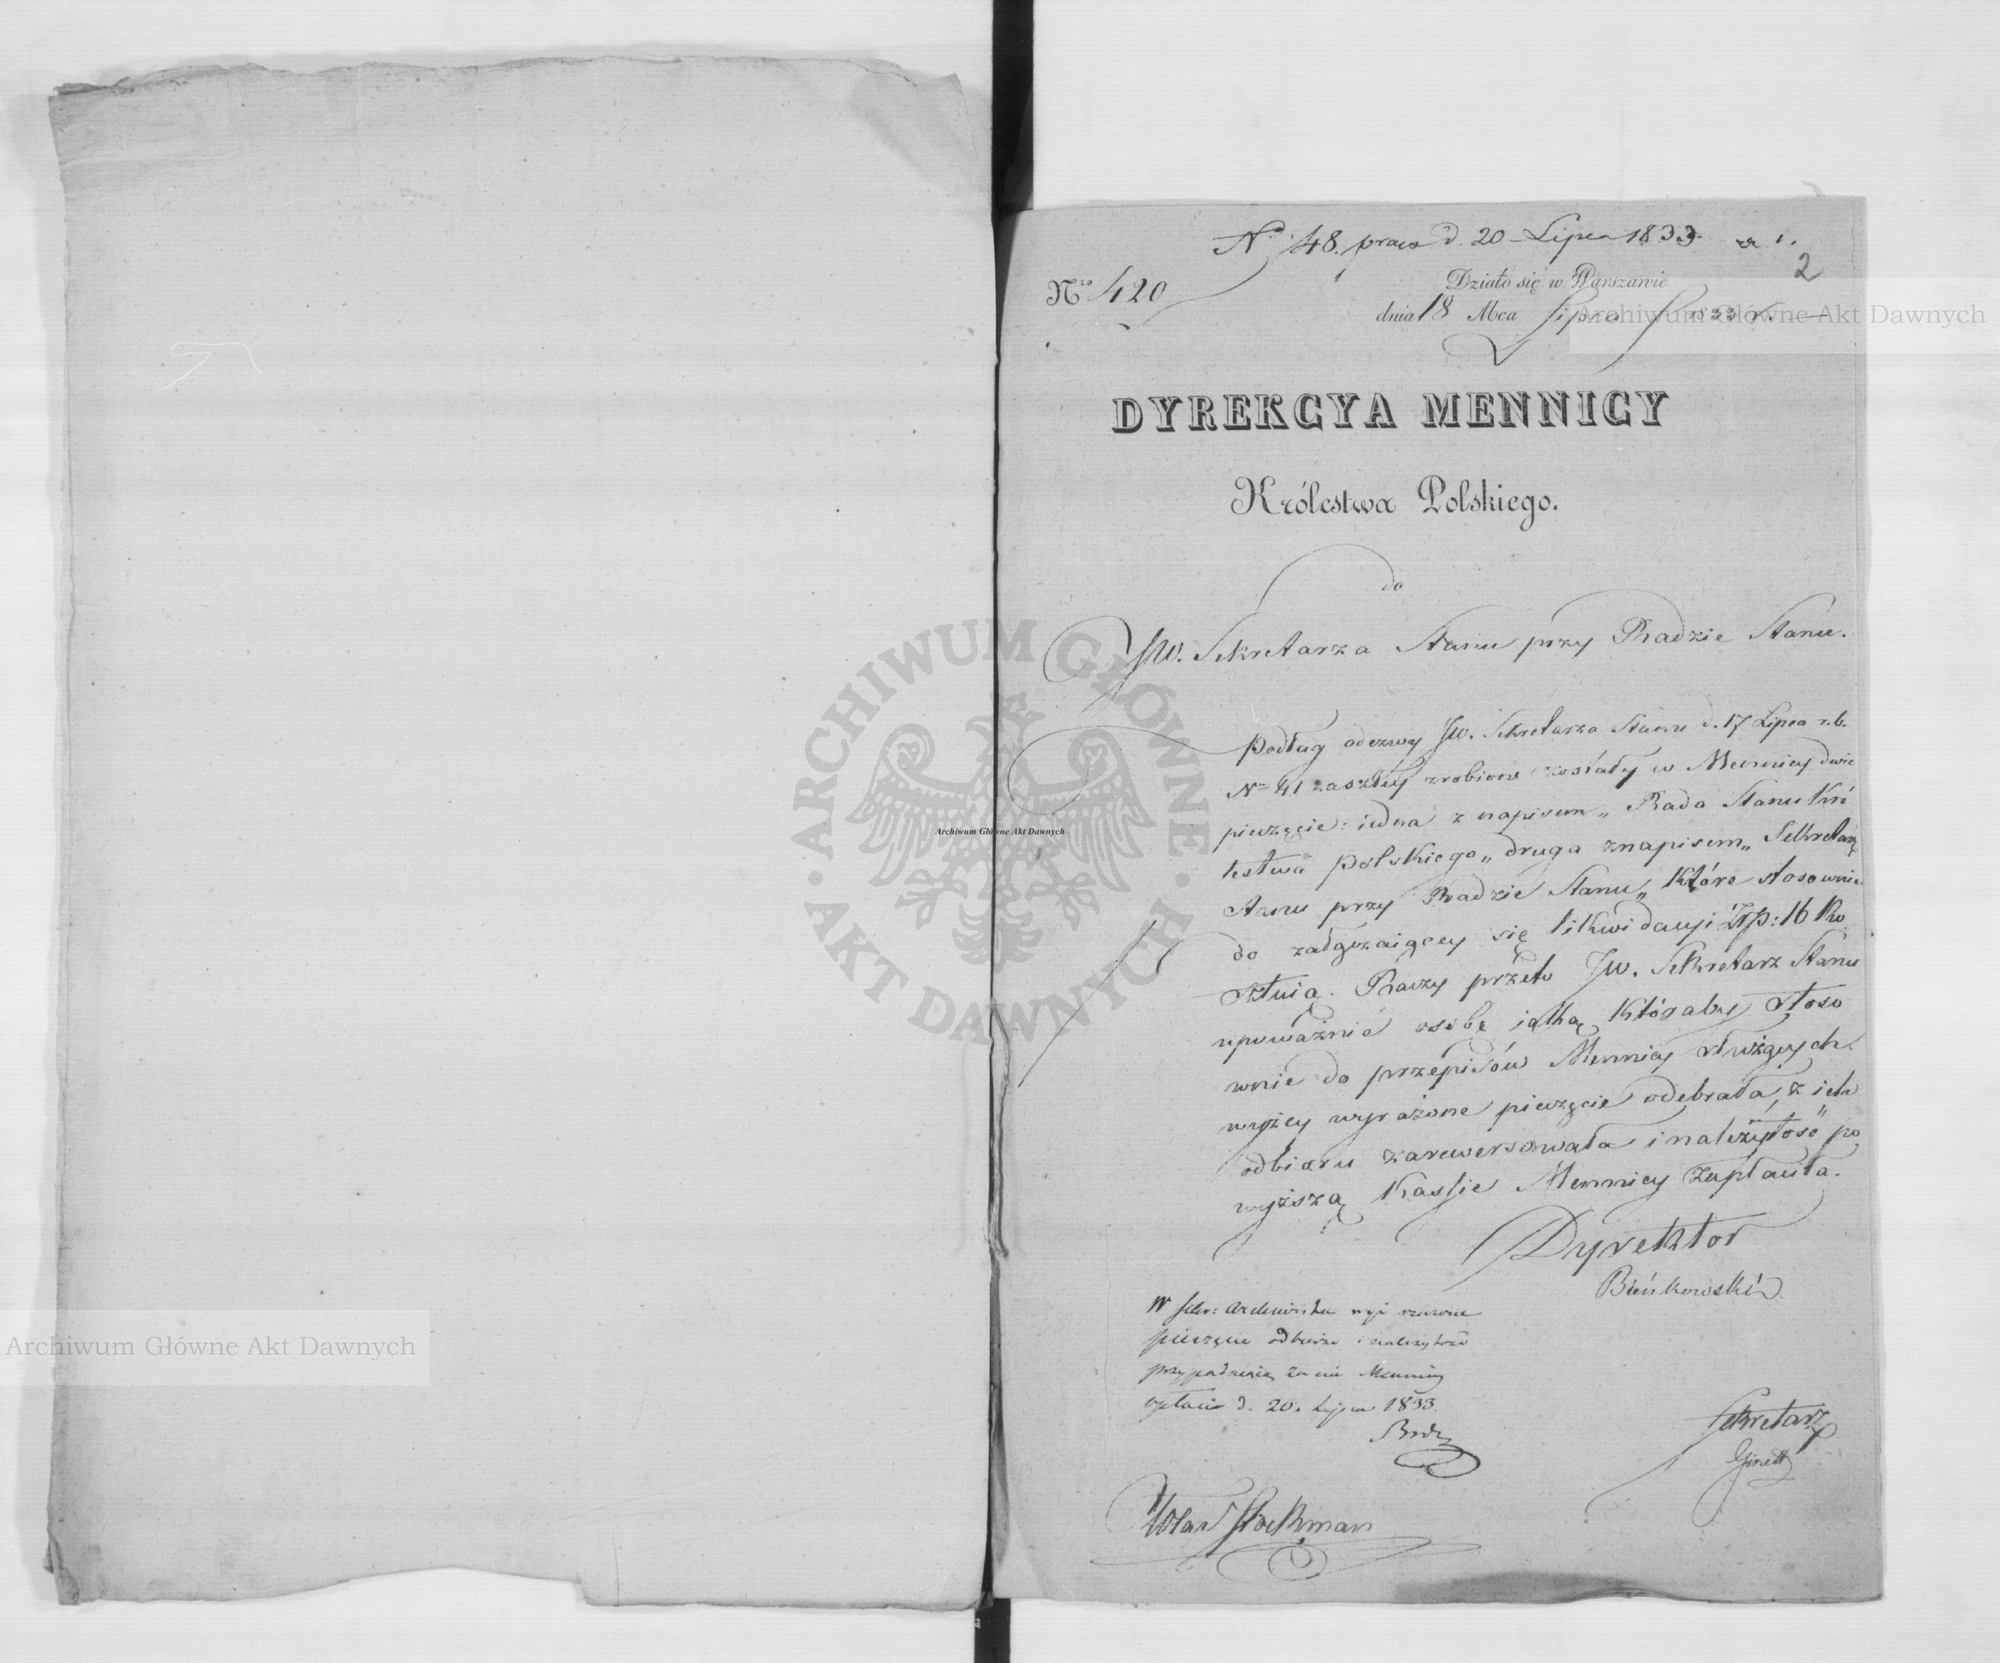 No 48. praes d. 20 Lipca 1833 r.
2
Nro 420
Działo się w Warszawie
dnia 18 Mca Lipca 1833 r.
DYREKCYA MENNICY
Królestwa Polskiego.
do
JW. Sekretarza Stanu przy Radzie Stanu.
Podług odezwy JW. Sekretarza Stanu d. 17 Lipca r.b.
No 41 zaszłey zrobione zostały w Mennicy dwie
pieczęcie: iedna z napisem „Rada Stanu Kró
lestwa Polskiego„ druga z napisem „Sekretarz
Stanu przy Radzie Stanu„ które stosownie
do załączaiącey się likwidacyi Złp: 16 Ko
sztuią. Raczy przeto JW. Sekretarz Stanu
upoważnić osobę iaką któraby stoso
wnie do przepisów Mennicy służących
wyżey wyrażone pieczęcie odebrała, z ich
odbioru zarewersowała i należytość po
wyższą Kassie Mennicy zapłaciła.
Dyrektor
Bieńkowski
W Sekr: wyż rzeczone
pieczęcie odbierze i należytość
przypadaiącą za nie Mennicy
opłaci d. 20 Lipca 1833
Sekretarz
Archiwum Główne Akt Dawnych
Archiwum Główne Akt Dawnych
Archiwum Główne Akt Dawnych
ARCHIWUM GŁÓWNE · AKT DAWNYCH ·